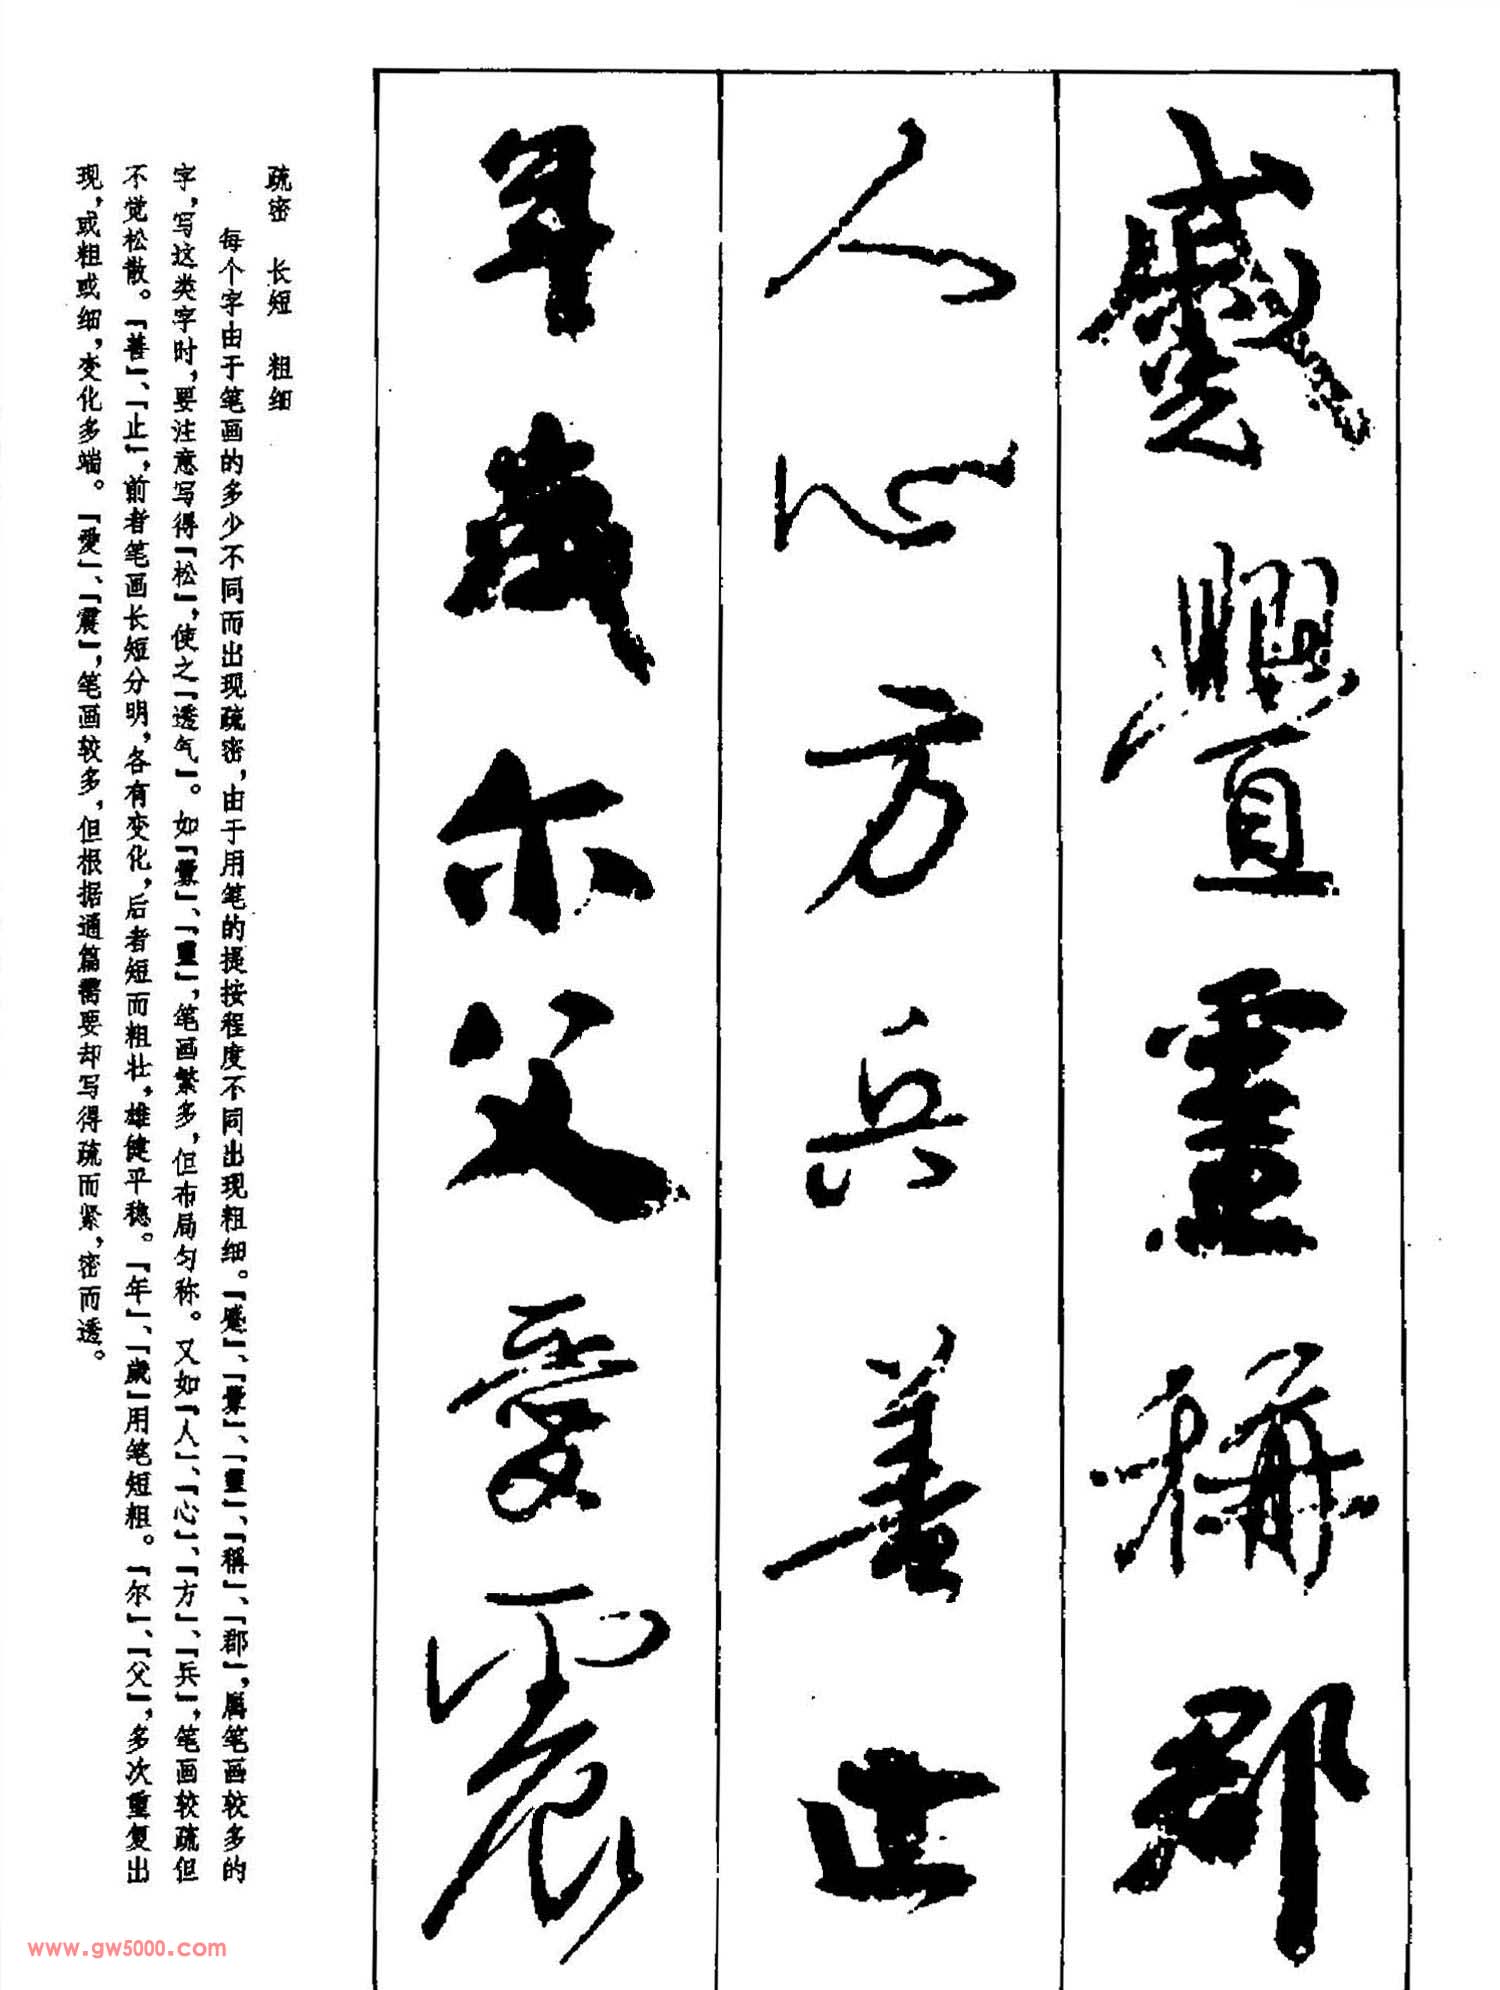 蹙釁靈稱郡
人心方兵善止
年歲尔父愛震
疏密 长短 粗细
每个字由于笔画的多少不同而出现疏密，由于用笔的提按程度不同出现粗细。「蹙」、「釁」、「靈」、「稱」、「郡」，属笔画较多的
字，写这类字时，要注意写得「松」，使之「透气」。如「釁」、「靈」，笔画繁多，但布局匀称。又如「人」、「心」、「方」、「兵」，笔画较疏但
不觉松散。「善」、「止」，前者笔画长短分明，各有变化，后者短而粗壮，雄健平稳。「年」、「歲」用笔短粗。「尔」、「父」，多次重复出
现，或粗或细，变化多端。「愛」、「震」，笔画较多，但根据通篇需要却写得疏而紧，密而透。
www.gw5000.com